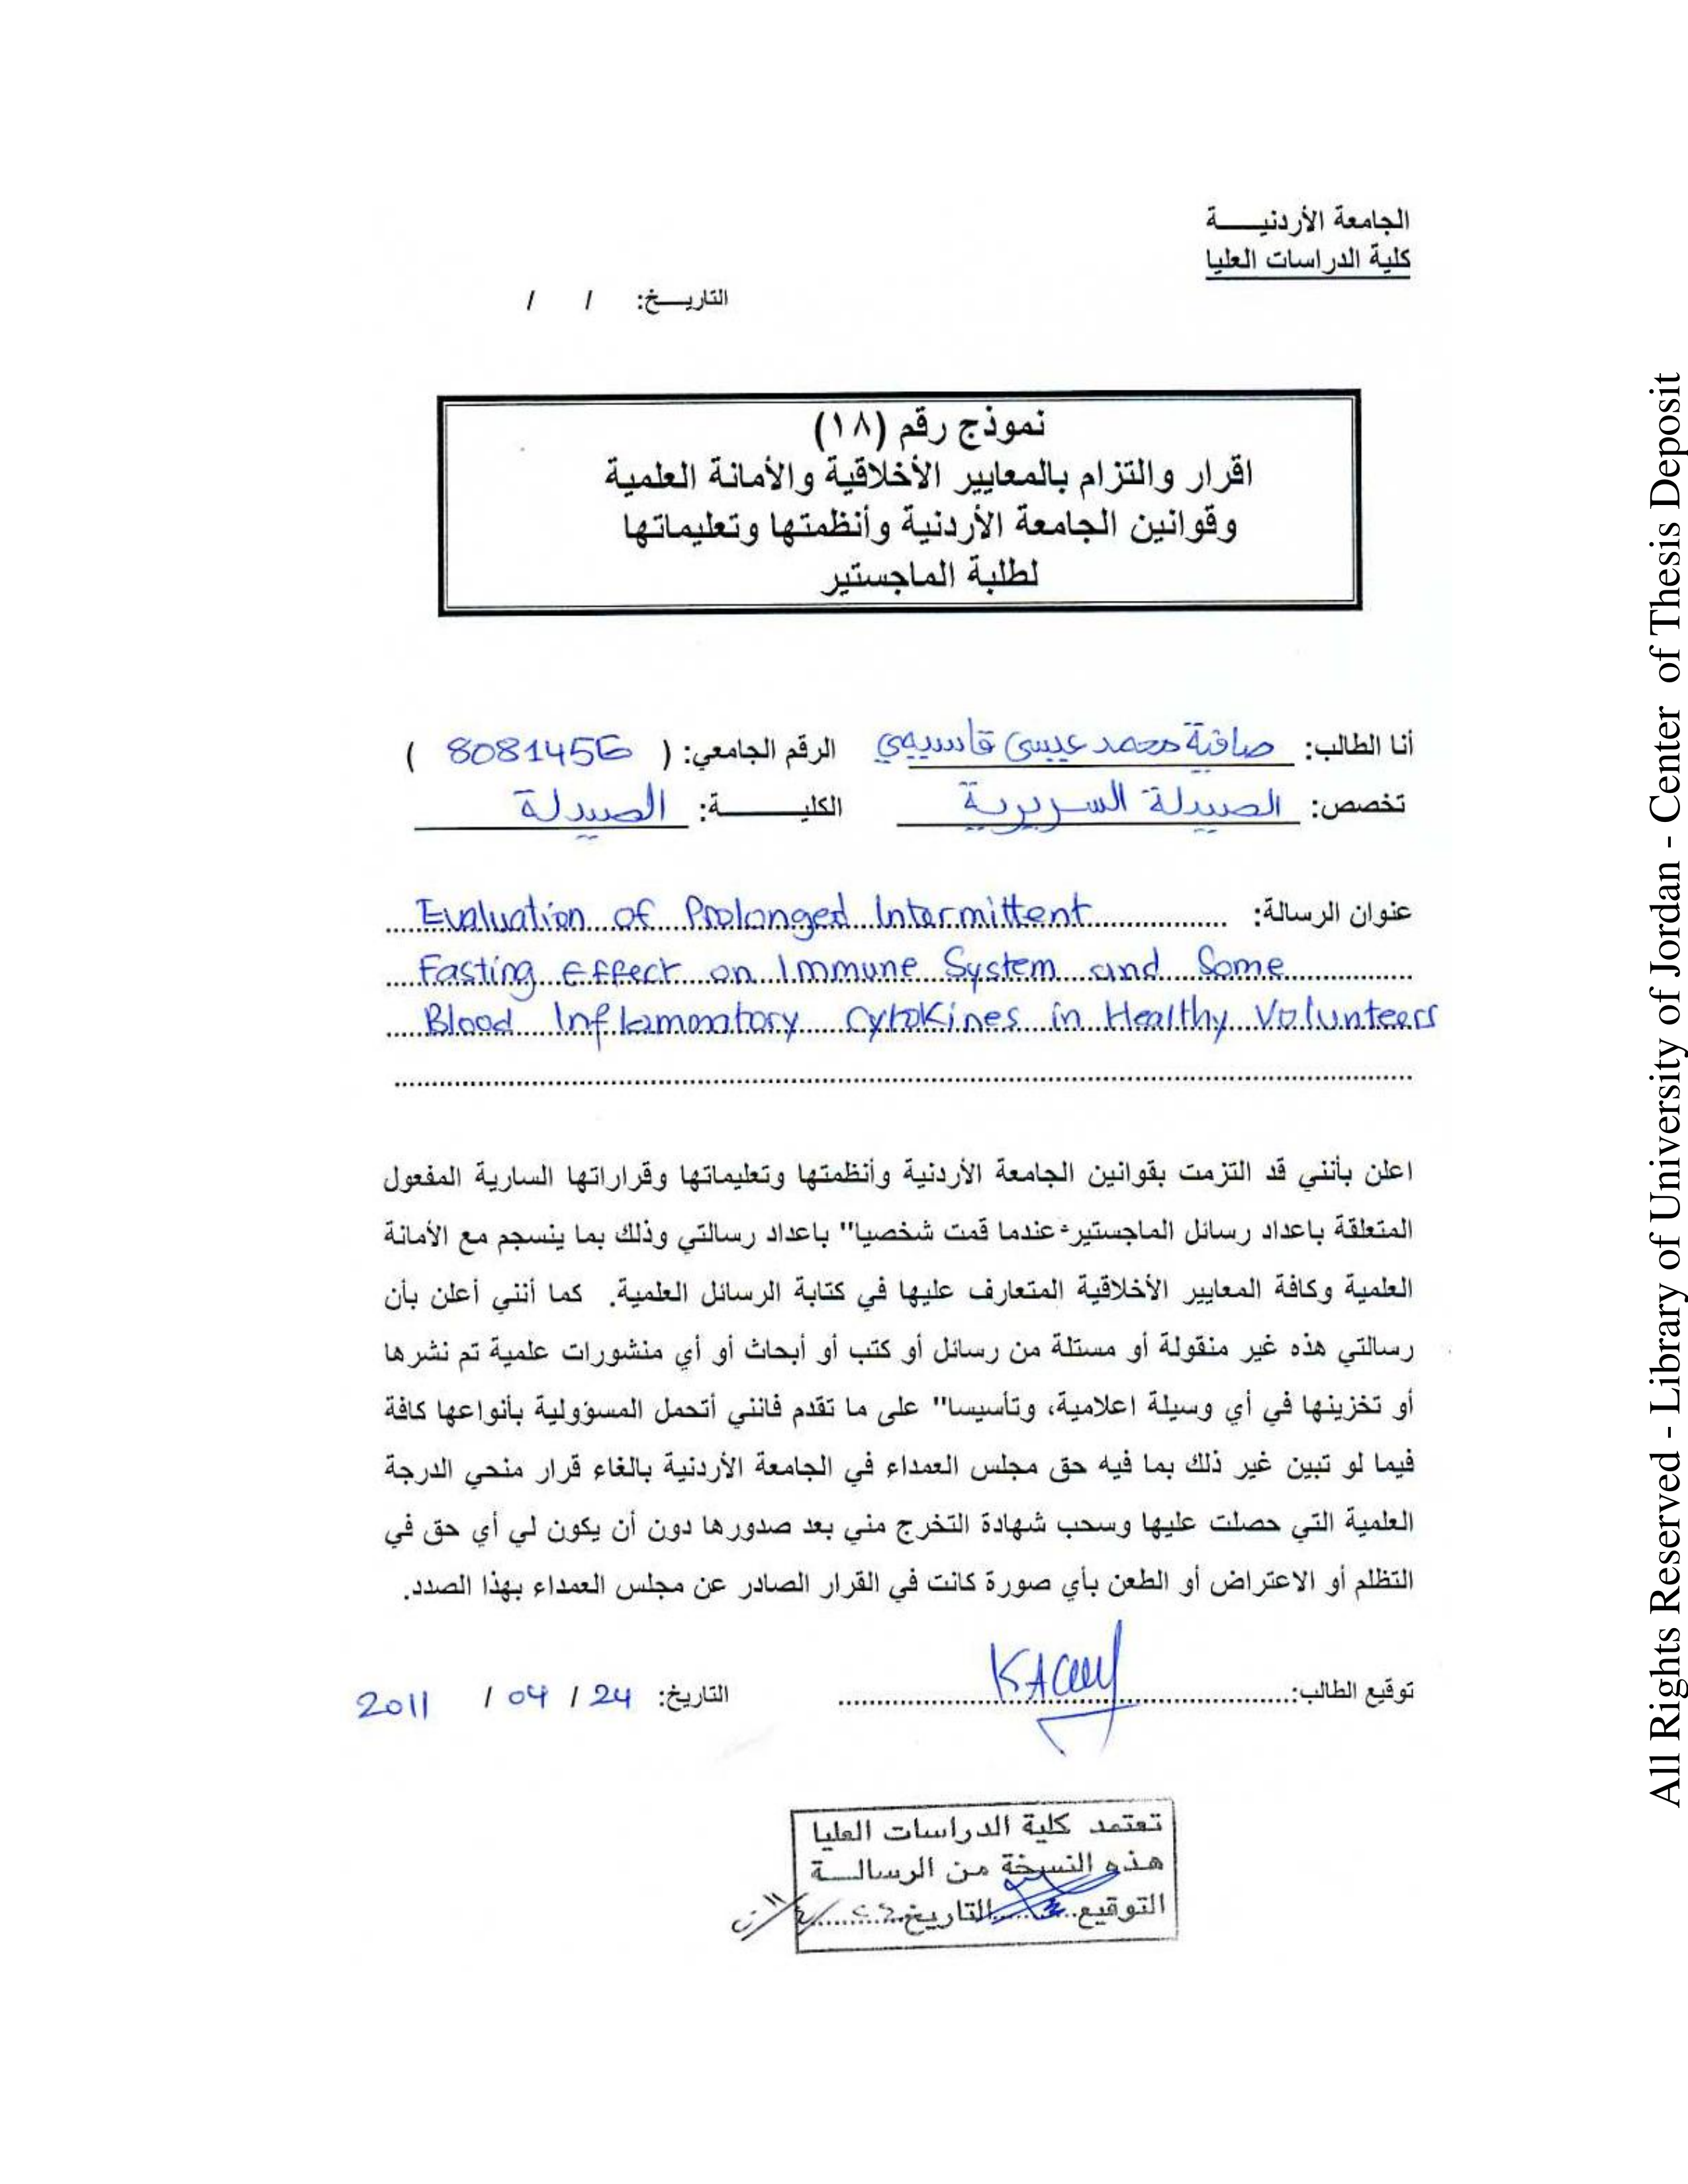 الجامعة الأردنيـــــة
كلية الدراسات العليا
التاريــخ: / /
نموذج رقم (١٨)
اقرار والتزام بالمعايير الأخلاقية والأمانة العلمية
وقوانين الجامعة الأردنية وأنظمتها وتعليماتها
لطلبة الماجستير
أنا الطالب: صافية محمد عيسى قاسيمي الرقم الجامعي: ( 8081456 )
تخصص: الصيدلة السريرية الكليـــــــة: الصيدلة
عنوان الرسالة: Evaluation of Prolonged Intermittent
Fasting Effect on Immune System and Some
Blood Inflammatory Cytokines in Healthy Volunteers
اعلن بأنني قد التزمت بقوانين الجامعة الأردنية وأنظمتها وتعليماتها وقراراتها السارية المفعول
المتعلقة باعداد رسائل الماجستير عندما قمت شخصيا" باعداد رسالتي وذلك بما ينسجم مع الأمانة
العلمية وكافة المعايير الأخلاقية المتعارف عليها في كتابة الرسائل العلمية. كما أنني أعلن بأن
رسالتي هذه غير منقولة أو مستلة من رسائل أو كتب أو أبحاث أو أي منشورات علمية تم نشرها
أو تخزينها في أي وسيلة اعلامية، وتأسيسا" على ما تقدم فانني أتحمل المسؤولية بأنواعها كافة
فيما لو تبين غير ذلك بما فيه حق مجلس العمداء في الجامعة الأردنية بالغاء قرار منحي الدرجة
العلمية التي حصلت عليها وسحب شهادة التخرج مني بعد صدورها دون أن يكون لي أي حق في
التظلم أو الاعتراض أو الطعن بأي صورة كانت في القرار الصادر عن مجلس العمداء بهذا الصدد.
توقيع الطالب: التاريخ: 24 / 04 / 2011
تعتمد كلية الدراسات العليا
هذه النسخة من الرسالـــة
التوقيع التاريخ
All Rights Reserved - Library of University of Jordan - Center of Thesis Deposit